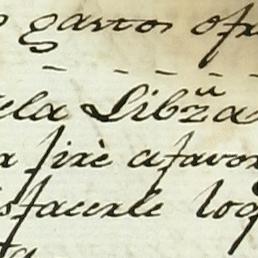 gastos ofr
ela Libzã
a firè afavor
sfacerle log